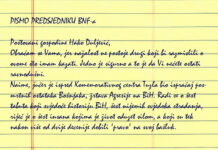 PISMO PREDSJEDNIKU BNF-a
Poštovani gospodine Hako Duljević,
Obraćam se Vama, jer najzad ne postoje drugi koji bi razmislili o
ovome što imam kazati. Jedno je sigurno a to je da Vi nećete ostati
ravnodušni.
Naime, jučer je ispred Komemorativnog centra Tuzla bio ispraćaj pos-
mrtnih ostataka Bošnjaka, žrtava Agresije na BiH. Radi se o šest
tabuta koji svjedoče historiji BiH, šest nijemih svjedoka stradanja,
riječ je o šest insana kojima je život oduzet silom, a koji su tek
nakon više od dvije decenije dobili "pravo" na svoj bašluk.